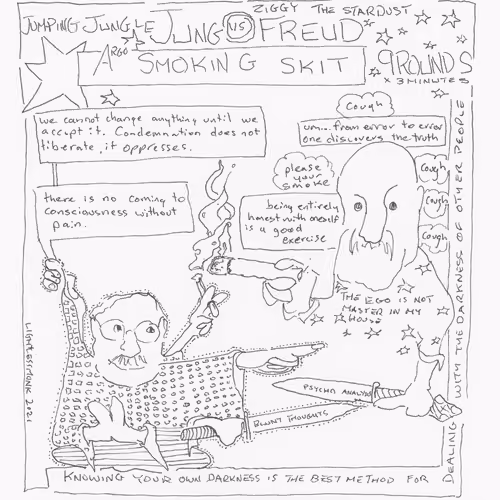 ZIGGY THE STARDUST
JUMPING JUNGLE JUNG VS FREUD
ARGO SMOKING SKIT
9 ROUNDS
x 3 MINUTES
we cannot change anything until we
accept it. Condemnation does not
liberate, it oppresses.
there is no coming to
consciousness without
pain.
Cough
um... from error to error
one discovers the truth
please
your
smoke
Cough
Cough
Cough
being entirely
honest with oneself
is a good
exercise
THE EGO IS NOT
MASTER IN MY
HOUSE
PSYCHO ANALYSIS
BLUNT THOUGHTS
KNOWING YOUR OWN DARKNESS IS THE BEST METHOD FOR
DEALING WITH THE DARKNESS OF OTHER PEOPLE
2021